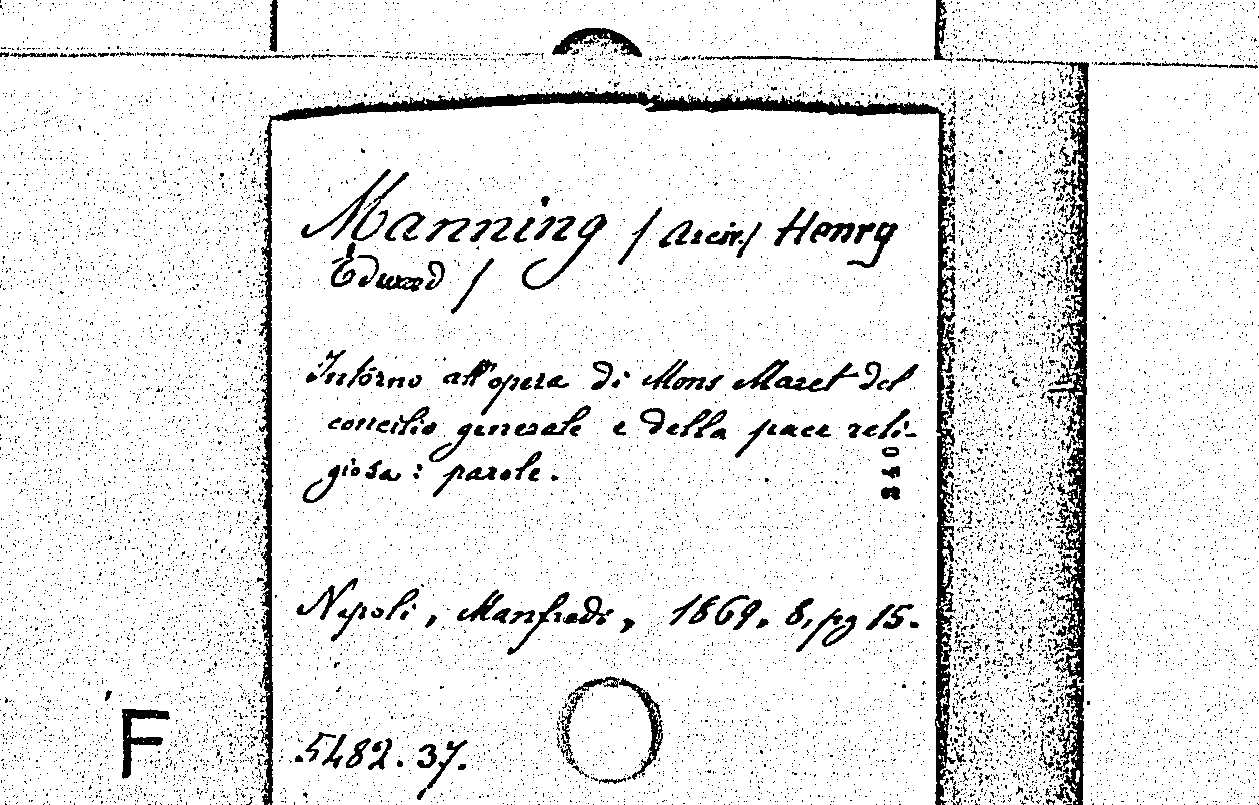 Manning / Arciv./ Henry
Eduard /
Intorno all'opera di Mons Maret del
concilio generale e della pace reli-
giosa : parole.
Napoli, Manfredi, 1869. 8, pg 15.
F
5482.37.